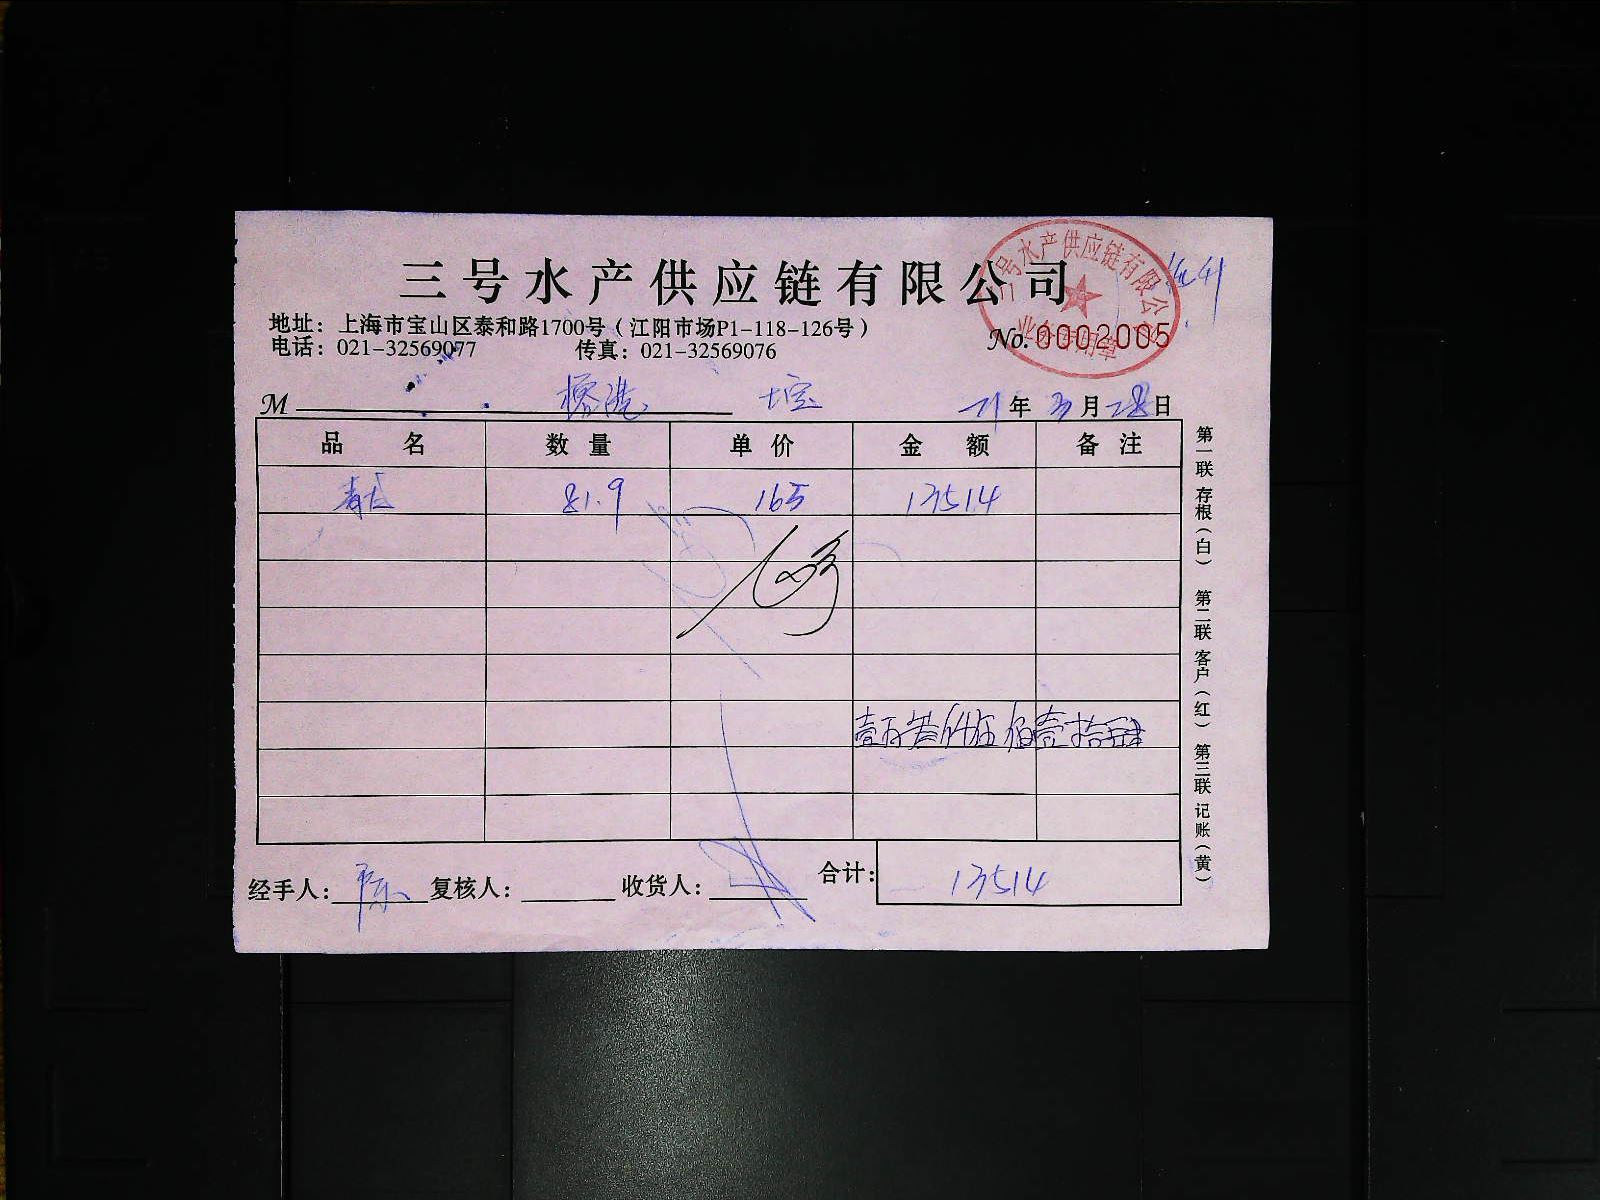 三号水产供应链有限公司
地址：上海市宝山区泰和路1700号（江阳市场P1-118-126号）
电话：021-32569077 传真：021-32569076
三号水产供应链有限公司
业务专用章
No. 0002005
M
21年3月28日
品名 数量 单价 金额 备注
81.9 165 13514
壹万叁仟伍佰壹拾肆
经手人：陈 复核人： 收货人： 合计：13514
第一联 存根（白） 第二联 客户（红） 第三联 记账（黄）